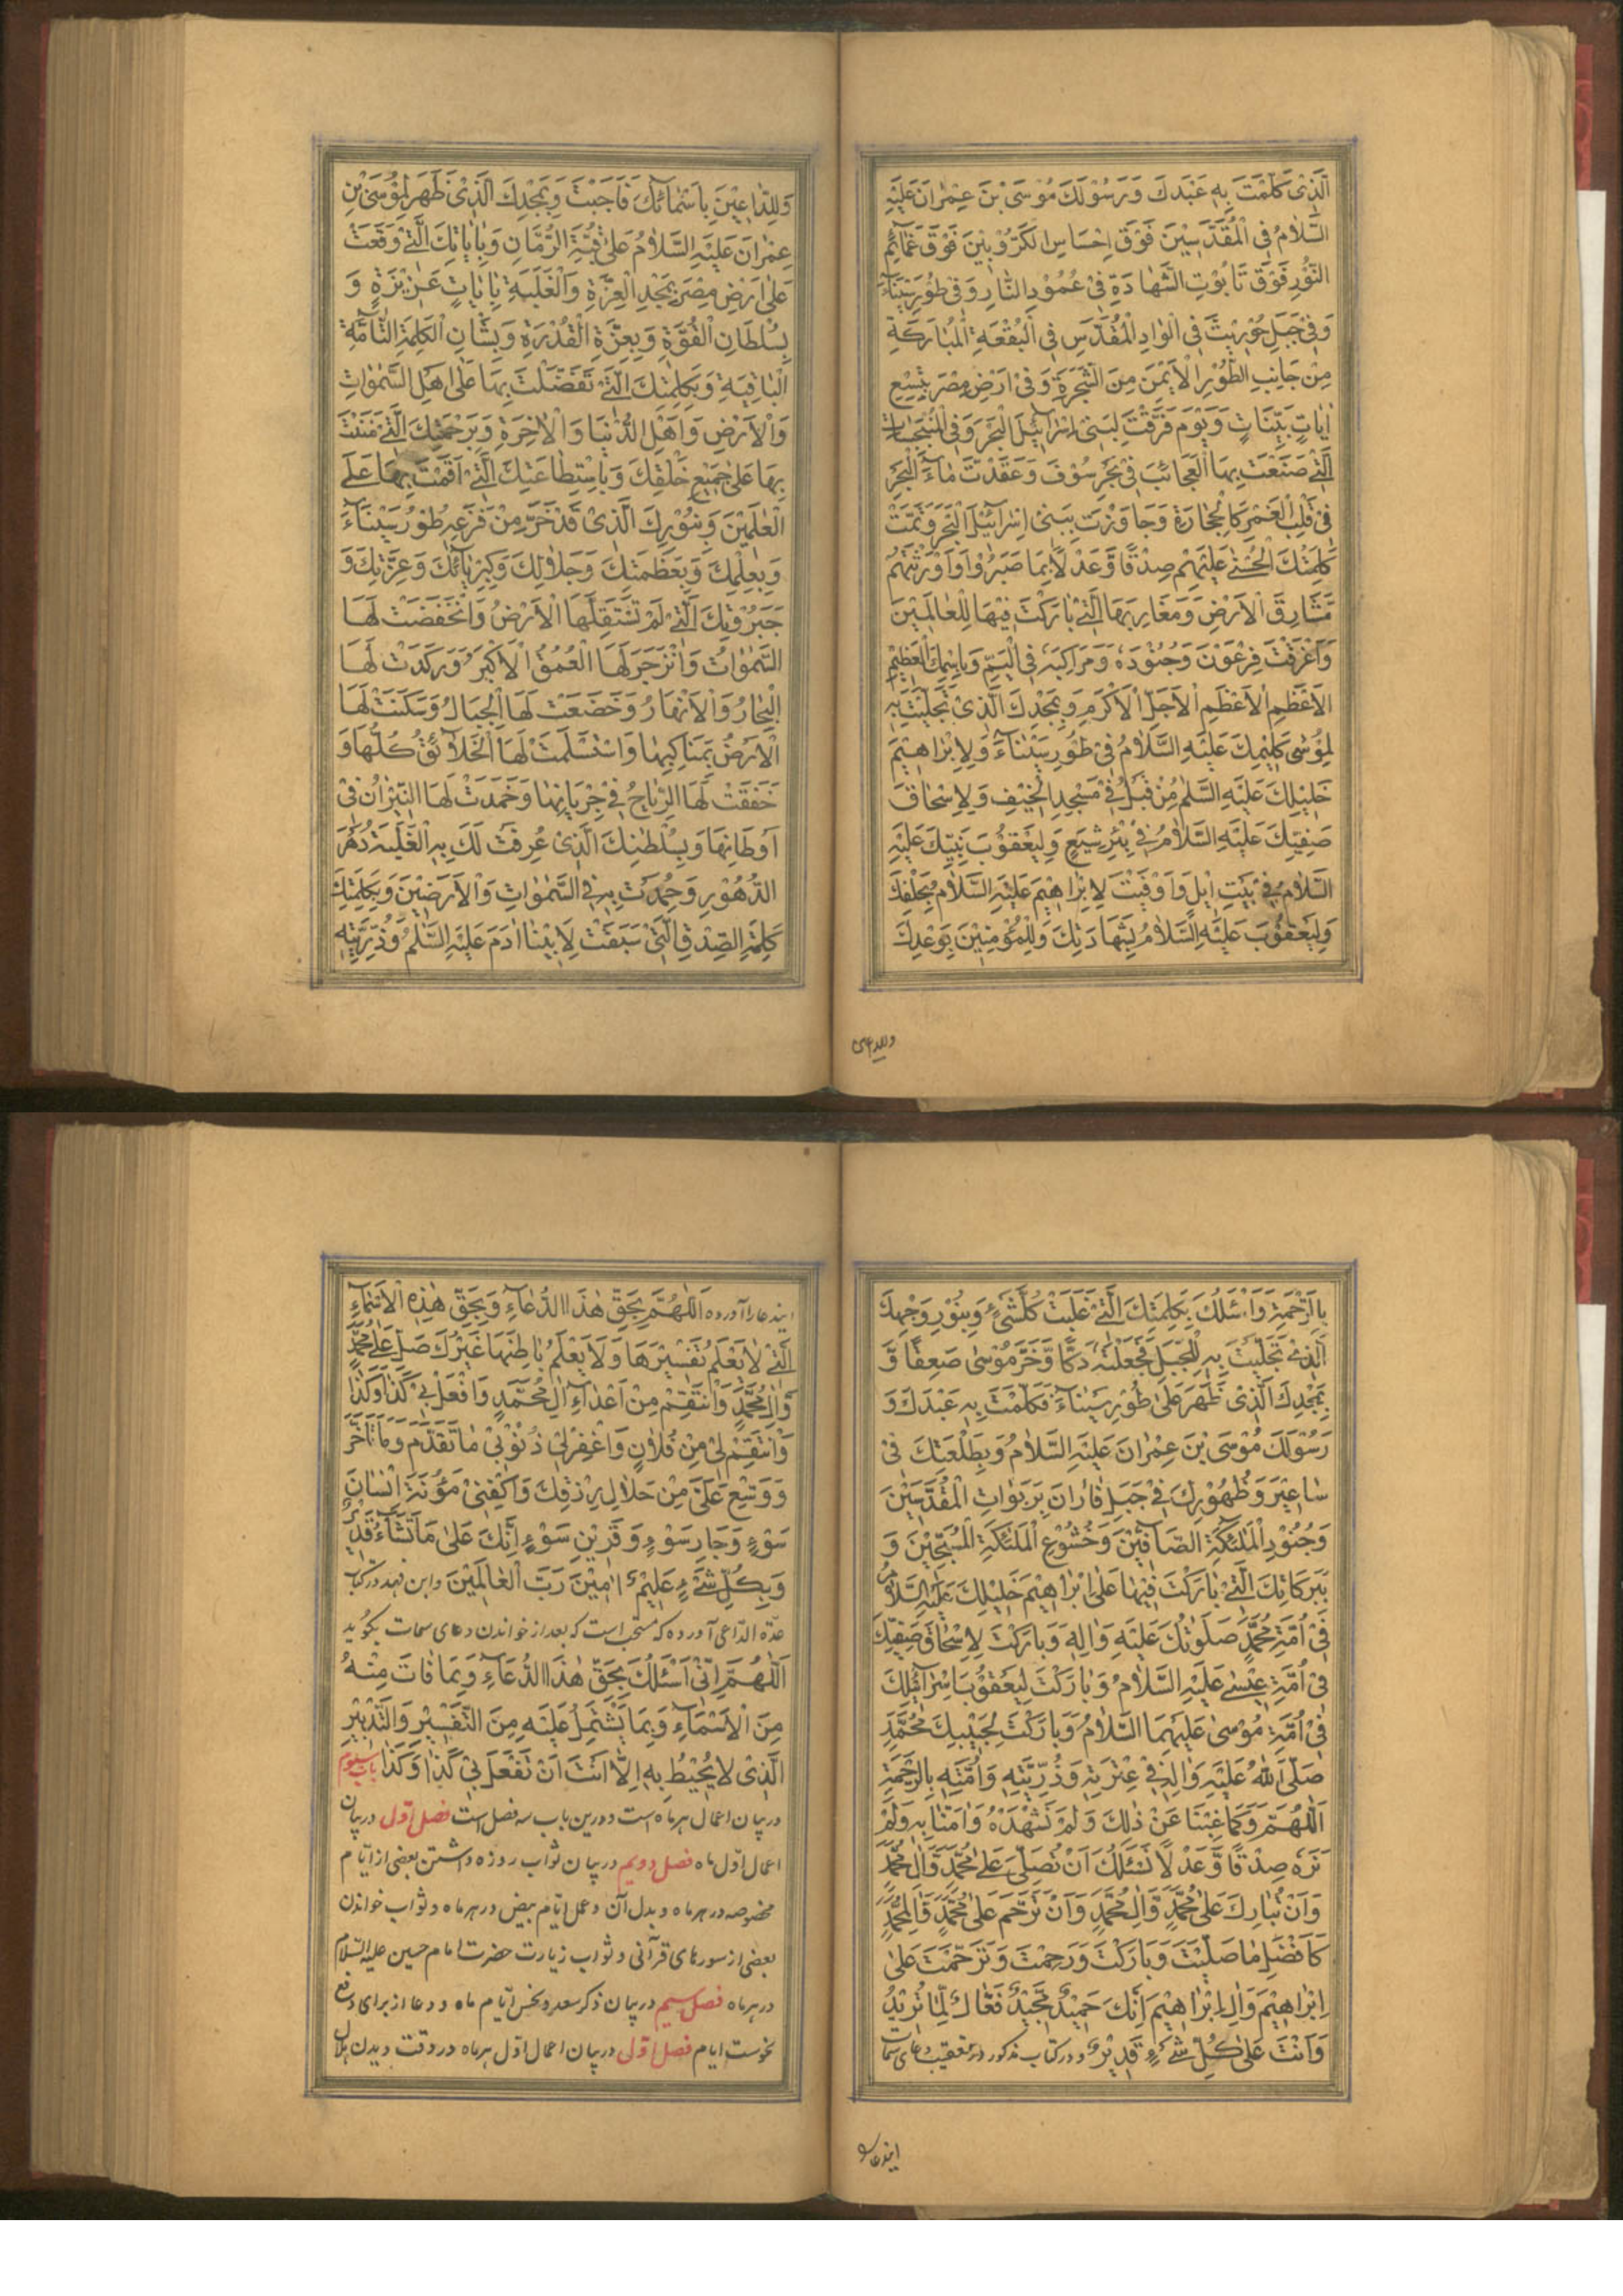 اَلَّذِیْ کَلَّمْتَ بِهٖ عَبْدَكَ وَرَسُوْلَكَ مُوْسَی بْنَ عِمْرٰانَ عَلَیْهِ
السَّلٰامُ فِی الْمُقَدَّسِیْنَ فَوْقَ اِحْسَاسِ الْکَرُّوْبِیْنَ فَوْقَ غَمَآئِمِ
النُّوْرِ فَوْقَ تَابُوْتِ الشَّهَادَةِ فِیْ عُمُوْدِ النَّارِ وَفِیْ طُوْرِ سَیْنَآءَ
وَفِیْ جَبَلِ حُوْرِیْثَ فِی الْوٰادِ الْمُقَدَّسِ فِی الْبُقْعَةِ الْمُبَارَکَةِ
مِنْ جَانِبِ الطُّوْرِ الْاَیْمَنِ مِنَ الشَّجَرَةِ وَفِیْ اَرْضِ مِصْرَ بِتِسْعِ
اٰیَاتٍ بَیِّنَاتٍ وَیَوْمَ فَرَقْتَ لِبَنِیْ اِسْرَآئِیْلَ الْبَحْرَ وَفِی الْمُنْبَجِسَاتِ
الَّتِیْ صَنَعْتَ بِهَا الْعَجَائِبَ فِیْ بَحْرِ سُوْفَ وَعَقَدْتَ مٰاءَ الْبَحْرِ
فِیْ قَلْبِ الْغَمْرِ کَالْحِجَارَةِ وَجَاوَزْتَ بِبَنِیْ اِسْرَآئِیْلَ الْبَحْرَ وَتَمَّتْ
کَلِمَتُكَ الْحُسْنٰی عَلَیْهِمْ صِدْقًا وَّعَدْلًا بِمَا صَبَرُوْا وَاَوْرَثْتَهُمْ
مَشَارِقَ الْاَرْضِ وَمَغَارِبَهَا الَّتِیْ بٰارَکْتَ فِیْهَا لِلْعٰالَمِیْنَ
وَاَغْرَقْتَ فِرْعَوْنَ وَجُنُوْدَهٗ وَمَرَاکِبَهٗ فِی الْیَمِّ وَبِاسْمِكَ الْعَظِیْمِ
الْاَعْظَمِ الْاَعْظَمِ الْاَجَلِّ الْاَکْرَمِ وَبِمَجْدِكَ الَّذِیْ تَجَلَّیْتَ بِهٖ
لِمُوْسٰی کَلِیْمِكَ عَلَیْهِ السَّلٰامُ فِیْ طُوْرِ سَیْنَآءَ وَلِاِبْرٰاهِیْمَ
خَلِیْلِكَ عَلَیْهِ السَّلٰمُ مِنْ قَبْلُ فِیْ مَسْجِدِ الْخَیْفِ وَلِاِسْحٰاقَ
صَفِیِّكَ عَلَیْهِ السَّلٰامُ فِیْ بِئْرِ شِیَعٍ وَلِیَعْقُوْبَ نَبِیِّكَ عَلَیْهِ
السَّلٰامُ فِیْ بَیْتِ اِیْلٍ وَاَوْفَیْتَ لِاِبْرٰاهِیْمَ عَلَیْهِ السَّلٰامُ بِحَلْفِكَ
وَلِیَعْقُوْبَ عَلَیْهِ السَّلٰامُ بِشَهَادَتِكَ وَلِلْمُؤْمِنِیْنَ بِوَعْدِكَ
وللداعین
وَلِلدّٰاعِیْنَ بِاَسْمٰائِكَ فَاَجَبْتَ وَبِمَجْدِكَ الَّذِیْ ظَهَرَ لِمُوْسَی بْنِ
عِمْرٰانَ عَلَیْهِ السَّلٰامُ عَلٰی قُبَّةِ الرُّمَّانِ وَبِاٰیٰاتِكَ الَّتِیْ وَقَعَتْ
عَلٰی اَرْضِ مِصْرَ بِمَجْدِ الْعِزَّةِ وَالْغَلَبَةِ بِاٰیٰاتٍ عَزِیْزَةٍ وَ
بِسُلْطَانِ الْقُوَّةِ وَبِعِزَّةِ الْقُدْرَةِ وَبِشَانِ الْکَلِمَةِ التّٰآمَّةِ
الْبٰاقِیَةِ وَبِکَلِمٰتِكَ الَّتِیْ تَفَضَّلْتَ بِهَا عَلٰی اَهْلِ السَّمٰوٰاتِ
وَالْاَرْضِ وَاَهْلِ الدُّنْیَا وَالْاٰخِرَةِ وَبِرَحْمَتِكَ الَّتِیْ مَنَنْتَ
بِهَا عَلٰی جَمِیْعِ خَلْقِكَ وَبِاسْتِطَاعَتِكَ الَّتِیْ اَقَمْتَ بِهَا عَلَی
الْعٰلَمِیْنَ وَبِنُوْرِكَ الَّذِیْ قَدْ خَرَّ مِنْ فَزَعِهٖ طُوْرُ سَیْنَآءَ
وَبِعِلْمِكَ وَبِعَظَمَتِكَ وَجَلٰالِكَ وَکِبْرِیَائِكَ وَعِزَّتِكَ وَ
جَبَرُوْتِكَ الَّتِیْ لَمْ تَسْتَقِلَّهَا الْاَرْضُ وَانْخَفَضَتْ لَهَا
السَّمٰوٰاتُ وَانْزَجَرَ لَهَا الْعُمْقُ الْاَکْبَرُ وَرَکَدَتْ لَهَا
الْبِحَارُ وَالْاَنْهَارُ وَخَضَعَتْ لَهَا الْجِبَالُ وَسَکَنَتْ لَهَا
الْاَرْضُ بِمَنَاکِبِهَا وَاسْتَسْلَمَتْ لَهَا الْخَلٰائِقُ کُلُّهَا وَ
خَفَقَتْ لَهَا الرِّیٰاحُ فِیْ جِرْیَانِهَا وَخَمَدَتْ لَهَا النِّیْرٰانُ فِیْ
اَوْطَانِهَا وَبِسُلْطٰنِكَ الَّذِیْ عُرِفَتْ لَكَ بِهِ الْغَلَبَةُ دَهْرَ
الدُّهُوْرِ وَحُمِدْتَ بِهٖ فِی السَّمٰوٰاتِ وَالْاَرَضِیْنَ وَبِکَلِمَتِكَ
کَلِمَةِ الصِّدْقِ الَّتِیْ سَبَقَتْ لِاَبِیْنَا اٰدَمَ عَلَیْهِ السَّلٰمُ وَذُرِّیَّتِهٖ
بِالرَّحْمَةِ وَاَسْئَلُكَ بِکَلِمَتِكَ الَّتِیْ غَلَبَتْ کُلَّ شَیْءٍ وَبِنُوْرِ وَجْهِكَ
الَّذِیْ تَجَلَّیْتَ بِهٖ لِلْجَبَلِ فَجَعَلْتَهٗ دَکًّا وَّخَرَّ مُوْسٰی صَعِقًا وَّ
بِمَجْدِكَ الَّذِیْ ظَهَرَ عَلٰی طُوْرِ سَیْنَآءَ فَکَلَّمْتَ بِهٖ عَبْدَكَ وَ
رَسُوْلَكَ مُوْسَی بْنَ عِمْرٰانَ عَلَیْهِ السَّلٰامُ وَبِطَلْعَتِكَ فِیْ
سَاعِیْرَ وَظُهُوْرِكَ فِیْ جَبَلِ فَارٰانَ بِرَبَوَاتِ الْمُقَدَّسِیْنَ
وَجُنُوْدِ الْمَلٰئِکَةِ الصَّآفِّیْنَ وَخُشُوْعِ الْمَلٰئِکَةِ الْمُسَبِّحِیْنَ وَ
بِبَرَکَاتِكَ الَّتِیْ بٰارَکْتَ فِیْهَا عَلٰی اِبْرٰاهِیْمَ خَلِیْلِكَ عَلَیْهِ السَّلٰامُ
فِیْ اُمَّةِ مُحَمَّدٍ صَلَوٰتُكَ عَلَیْهِ وَاٰلِهٖ وَبَارَکْتَ لِاِسْحٰاقَ صَفِیِّكَ
فِیْ اُمَّةِ عِیْسٰی عَلَیْهِ السَّلٰامُ وَبٰارَکْتَ لِیَعْقُوْبَ اِسْرَآئِیْلِكَ
فِیْ اُمَّةِ مُوْسٰی عَلَیْهِمَا السَّلٰامُ وَبَارَکْتَ لِحَبِیْبِكَ مُحَمَّدٍ
صَلَّی اللّٰهُ عَلَیْهِ وَاٰلِهٖ فِیْ عِتْرَتِهٖ وَذُرِّیَّتِهٖ وَاُمَّتِهٖ بِالرَّحْمَةِ
اَللّٰهُمَّ وَکَمَا غِبْنَا عَنْ ذٰلِكَ وَلَمْ نَشْهَدْهُ وَاٰمَنَّا بِهٖ وَلَمْ
نَرَهٗ صِدْقًا وَّعَدْلًا نَسْئَلُكَ اَنْ تُصَلِّیَ عَلٰی مُحَمَّدٍ وَّاٰلِ مُحَمَّدٍ
وَاَنْ تُبَارِكَ عَلٰی مُحَمَّدٍ وَّاٰلِ مُحَمَّدٍ وَاَنْ تَرَحَّمَ عَلٰی مُحَمَّدٍ وَّاٰلِ مُحَمَّدٍ
کَاَفْضَلِ مٰا صَلَّیْتَ وَبَارَکْتَ وَرَحِمْتَ وَتَرَحَّمْتَ عَلٰی
اِبْرٰاهِیْمَ وَاٰلِ اِبْرٰاهِیْمَ اِنَّكَ حَمِیْدٌ مَّجِیْدٌ فَعَّالٌ لِّمٰا تُرِیْدُ
وَاَنْتَ عَلٰی کُلِّ شَیْءٍ قَدِیْرٌ و در کتاب مذکور در تعقیب دعای سمات
ایندعا را
ایندعا را آورده اَللّٰهُمَّ بِحَقِّ هٰذَا الدُّعَآءِ وَبِحَقِّ هٰذِهِ الْاَسْمَآءِ
الَّتِیْ لٰا یَعْلَمُ تَفْسِیْرَهَا وَلَا یَعْلَمُ بَاطِنَهَا غَیْرُكَ صَلِّ عَلٰی مُحَمَّدٍ
وَّاٰلِ مُحَمَّدٍ وَانْتَقِمْ مِنْ اَعْدَآءِ اٰلِ مُحَمَّدٍ وَافْعَلْ بِیْ کَذَا وَکَذَا
وَانْتَقِمْ لِیْ مِنْ فُلٰانٍ وَاغْفِرْ لِیْ ذُنُوْبِیْ مَا تَقَدَّمَ وَمَا تَاَخَّرَ
وَوَسِّعْ عَلَیَّ مِنْ حَلٰالِ رِزْقِكَ وَاکْفِنِیْ مَؤُنَةَ اِنْسَانِ
سَوْءٍ وَجَارِ سَوْءٍ وَقَرِیْنِ سَوْءٍ اِنَّكَ عَلٰی مَا تَشَآءُ قَدِیْرٌ
وَبِکُلِّ شَیْءٍ عَلِیْمٌ اٰمِیْنَ رَبَّ الْعٰالَمِیْنَ وابن فهد در کتاب
عدّة الدّاعی آورده که مستحب است که بعد از خواندن دعای سمات بگوید
اَللّٰهُمَّ اِنِّیْ اَسْئَلُكَ بِحَقِّ هٰذَا الدُّعَآءِ وَبِمَا فَاتَ مِنْهُ
مِنَ الْاَسْمَآءِ وَبِمَا یَشْتَمِلُ عَلَیْهِ مِنَ التَّفْسِیْرِ وَالتَّدْبِیْرِ
الَّذِیْ لَا یُحِیْطُ بِهٖ اِلَّا اَنْتَ اَنْ تَفْعَلَ بِیْ کَذَا وَکَذَا باب سیوم
در بیان اعمال هر ماه است و درین باب سه فصل است فصل اوّل در بیان
اعمال اوّل ماه فصل دویم در بیان ثواب روزه داشتن بعضی از ایّام
مخصوصه در هر ماه و بدل آن و عمل ایّام بیض در هر ماه و ثواب خواندن
بعضی از سورهای قرآنی و ثواب زیارت حضرت امام حسین علیه السّلام
در هر ماه فصل سیم در بیان ذکر سعد و نحس ایّام ماه و دعا از برای دفع
نحوست ایام فصل اوّل در بیان اعمال اوّل هر ماه در وقت دیدن هلال